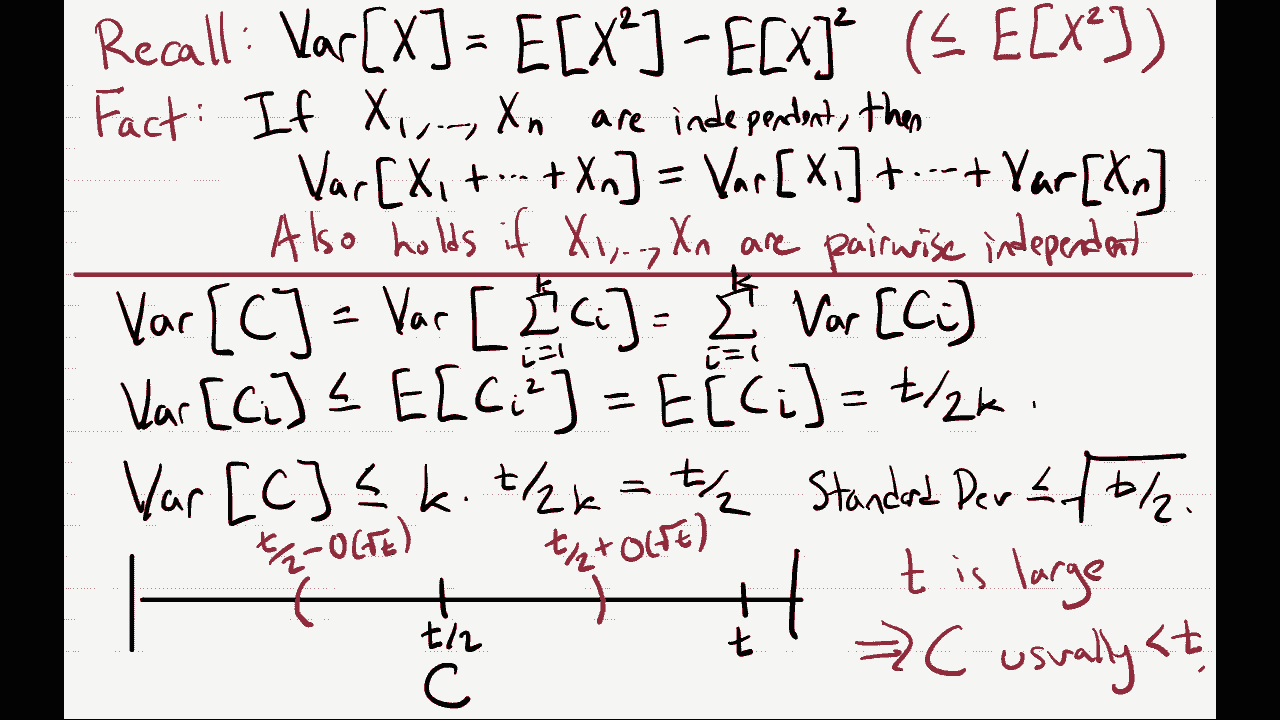 Recall: Var[X] = E[X²] - E[X]² (≤ E[X²])
Fact: If X₁,...,Xₙ are independent, then
Var[X₁ + ··· + Xₙ] = Var[X₁] + ··· + Var[Xₙ]
Also holds if X₁,...,Xₙ are pairwise independent
Var[C] = Var[∑ᵢ₌₁ᵏ Cᵢ] = ∑ᵢ₌₁ᵏ Var[Cᵢ]
Var[Cᵢ] ≤ E[Cᵢ²] = E[Cᵢ] = t/2k.
Var[C] ≤ k · t/2k = t/2 Standard Dev ≤ √t/2.
t/2 - O(√t) t/2 + O(√t)
t is large
t/2 t
⇒ C usually < t.
C